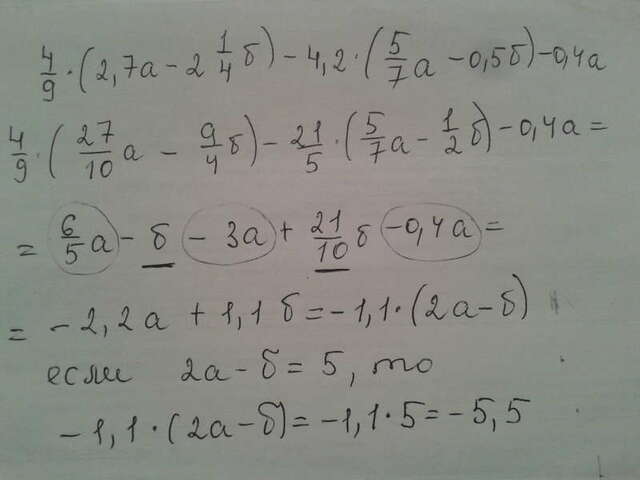 4/9 · (2,7а - 2 1/4 б) - 4,2 · (5/7 а - 0,5б) - 0,4а
4/9 · (27/10 а - 9/4 б) - 21/5 · (5/7 а - 1/2 б) - 0,4а =
= 6/5 а - б - 3а + 21/10 б - 0,4а =
= -2,2а + 1,1б = -1,1 · (2а - б)
если 2а - б = 5, то
-1,1 · (2а - б) = -1,1 · 5 = -5,5